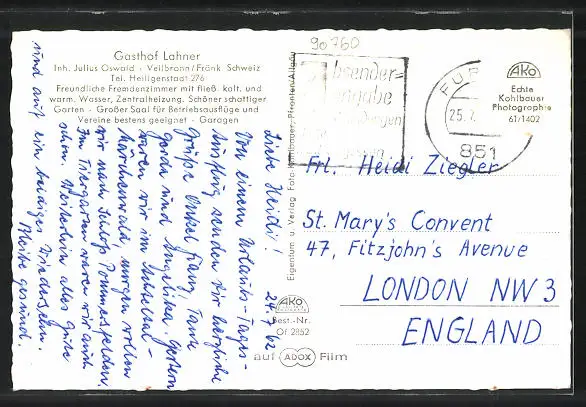 90760
Gasthof Lahner
Inh. Julius Oswald - Veilbronn/Fränk. Schweiz
Tel. Heiligenstadt 276
Freundliche Fremdenzimmer mit fließ. kalt. und
warm. Wasser, Zentralheizung. Schöner schattiger
Garten - Großer Saal für Betriebsausflüge und
Vereine bestens geeignet - Garagen
24.7.62
Liebe Heidi!
Von einem Urlaubs-Tages-
Ausflug senden wir herzliche
Grüße Onkel Franz, Tante
Gerda und Angelika. Gestern
waren wir im
Märchenwald, morgen wollen
wir nach Schloß Pommersfelden.
Im Tiergarten waren wir auch
schon. Weiterhin alles Gute
und auf ein baldiges Wiedersehen.
Bleibe gesund.
Eigentum u. Verlag Foto-Kohlbauer, Pfronten/Allgäu
AKO
Best.-Nr.
Of 2852
auf ADOX Film
Absender=
angabe
FÜR
25.7.
851
AKO
Echte
Kohlbauer
Photographie
61/1402
Frl. Heidi Ziegler
St. Mary's Convent
47, Fitzjohn's Avenue
LONDON NW 3
ENGLAND